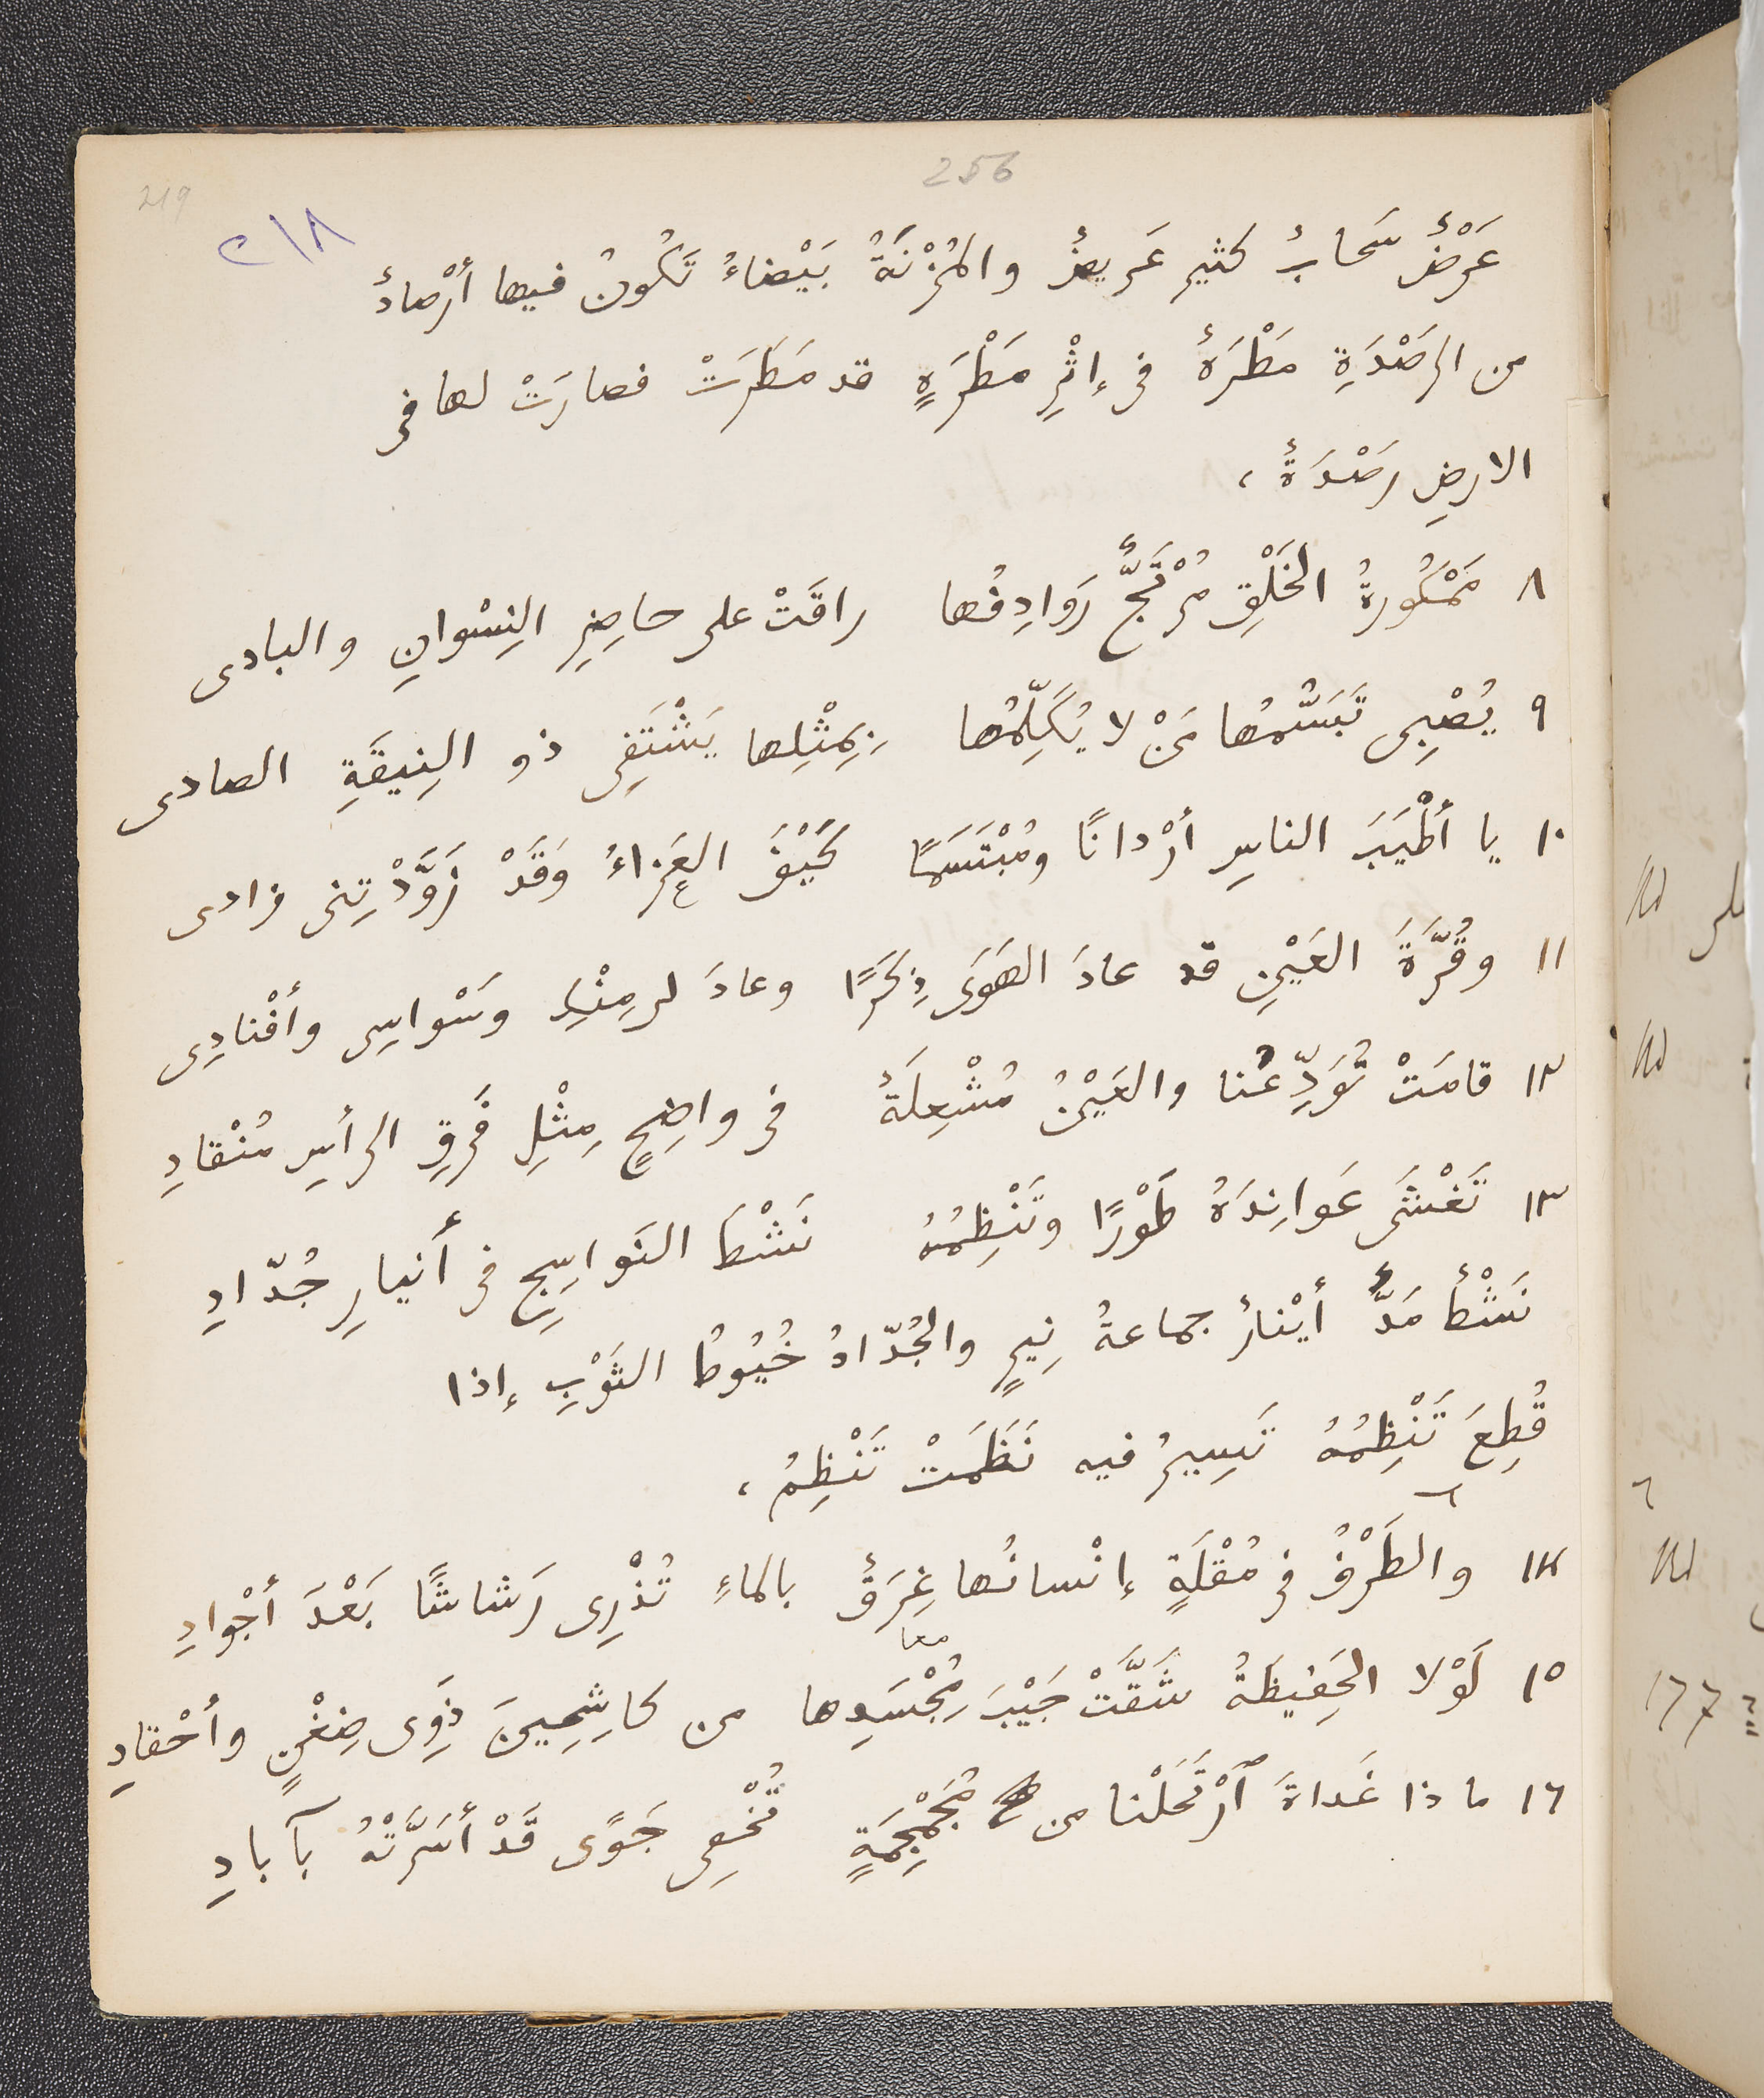 256
219
٢١٨
عَرْضٌ سَحابٌ كثير عَريضٌ والمُزْنَةُ بَيْضاءُ تَكُونُ فيها أرْصادٌ
من الرَصْدَةِ مَطْرَةٌ فى إثْرِ مَطْرَةٍ قد مَطَرَتْ فصارَتْ لها فى
الارضِ رَصْدَةٌ،
٨ مَمْكُورةُ الخَلْقِ مُرْتَجٌّ رَوَادِفُها راقَتْ على حاضِرِ النِسْوانِ والبادى
٩ يُصْبِى تَبَسُّمُها مَنْ لا يُكَلِّمُها بِمِثْلِها يَشْتَفِى ذو النِيقَةِ الصادى
١٠ يا أطْيَبَ الناسِ أرْدانًا ومُبْتَسَمًا كَيْفَ العَزاءُ وَقَدْ زَوَّدْتِنى زادى
١١ وقُرَّةَ العَيْنِ قد عادَ الهَوَى ذِكَرًا وعادَ لى مِنْكِ وَسْواسِى وأفْنادِى
١٢ قامَتْ تُوَدِّعُنا والعَيْنُ مُشْعِلَةٌ فى واضِحٍ مِثْلِ فَرقِ الرأسِ مُنْقادِ
١٣ تَغْشَى عَوانِدَهُ طَوْرًا وتَنْظِمُهُ نَشْطَ النَواسِجِ فى أنيارِ جُدّادِ
نَشْطٌ مَدٌّ أيْنارٌ جماعةُ نِيرٍ والجُدّادُ خُيُوطُ الثَوْبِ إذا
قُطِعَ تَنْظِمُهُ تَسِيرُ فيه نَظَمَتْ تَنْظِمُ،
١٤ والطَرْفُ فى مُقْلَةٍ إنْسانُها غَرَقٌ بالماءِ تُذْرِى رَشاشًا بَعْدَ أجْوادِ
١٥ لَوْلا الحَفِيظَةُ شَقَّتْ جَيْبَ مُجْسَدِها من كاشِحِينَ ذَوِى ضِغْنٍ وأحْقادِ
معا
١٦ ما ذا غَداةَ ٱرْتَحَلْنا من مُجَمْجِمَةٍ تُخْفِى جَوًى قَدْ أسَرَّتْهُ بآبادِ